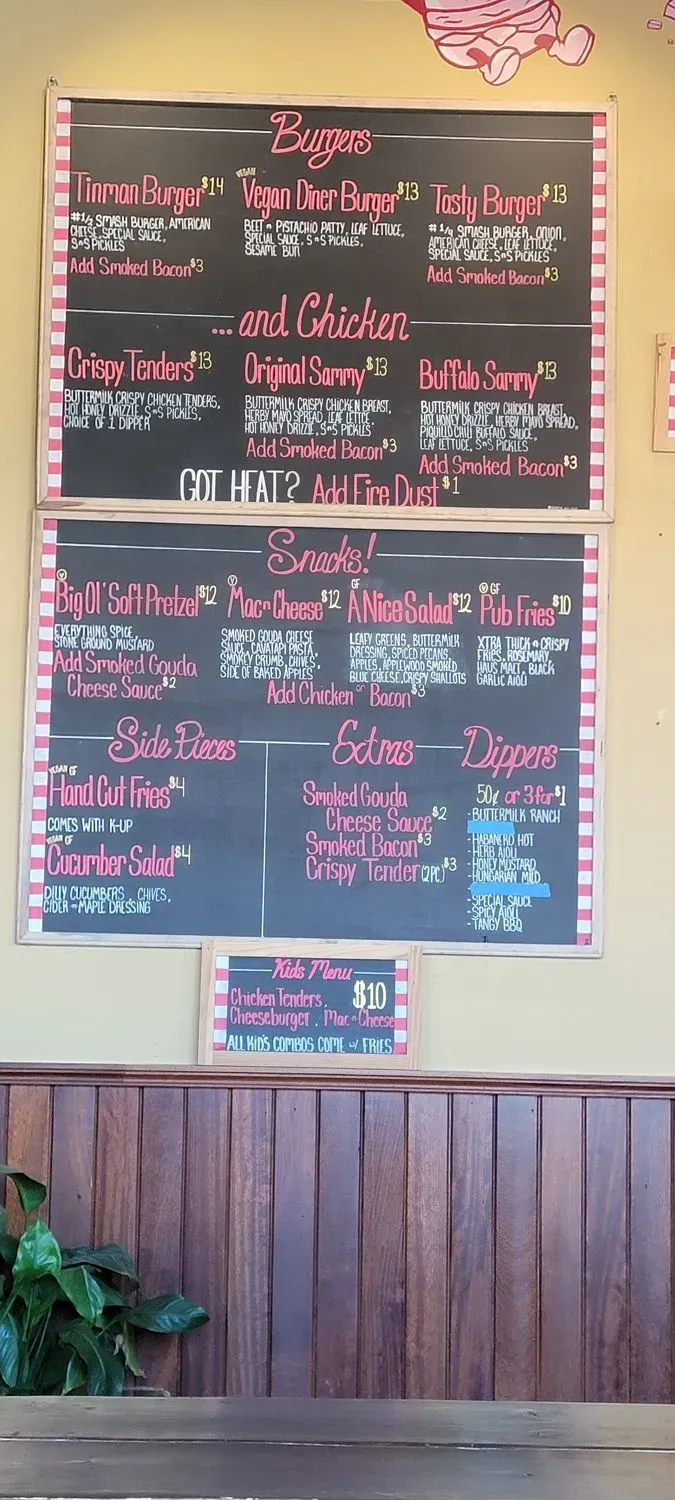 Burgers
Tinman Burger $14
#1/2 SMASH BURGER, AMERICAN
CHEESE, SPECIAL SAUCE,
S+S PICKLES
Add Smoked Bacon $3
VEGAN
Vegan Diner Burger $13
BEET + PISTACHIO PATTY, LEAF LETTUCE,
SPECIAL SAUCE, S+S PICKLES,
SESAME BUN
Tasty Burger $13
#1/4 SMASH BURGER, ONION,
AMERICAN CHEESE, LEAF LETTUCE,
SPECIAL SAUCE, S+S PICKLES
Add Smoked Bacon $3
... and Chicken
Crispy Tenders $13
BUTTERMILK CRISPY CHICKEN TENDERS,
HOT HONEY DRIZZLE, S+S PICKLES,
CHOICE OF 1 DIPPER
Original Sammy $13
BUTTERMILK CRISPY CHICKEN BREAST,
HERBY MAYO SPREAD, LEAF LETTCE,
HOT HONEY DRIZZLE, S+S PICKLES
Add Smoked Bacon $3
Buffalo Sammy $13
BUTTERMILK CRISPY CHICKEN BREAST,
HOT HONEY DRIZZLE, HERBY MAYO SPREAD,
PIQUILLO CHILI BUFFALO SAUCE,
LEAF LETTUCE, S+S PICKLES
Add Smoked Bacon $3
GOT HEAT? Add Fire Dust $1
Snacks!
V
Big Ol' Soft Pretzel $12
EVERYTHING SPICE,
STONE GROUND MUSTARD
Add Smoked Gouda
Cheese Sauce $2
V
Mac n Cheese $12
SMOKED GOUDA CHEESE
SAUCE, CAVATAPI PASTA,
SMOKEY CRUMB, CHIVES,
SIDE OF BAKED APPLES
GF
A Nice Salad $12
LEAFY GREENS, BUTTERMILK
DRESSING, SPICED PECANS,
APPLES, APPLEWOOD SMOKED
BLUE CHEESE, CRISPY SHALLOTS
Add Chicken or Bacon $3
V GF
Pub Fries $10
XTRA THICK + CRISPY
FRIES, ROSEMARY
HAUS MALT, BLACK
GARLIC AIOLI
Side Pieces
VEGAN GF
Hand Cut Fries $4
COMES WITH K-UP
VEGAN GF
Cucumber Salad $4
DILLY CUCUMBERS, CHIVES,
CIDER + MAPLE DRESSING
Extras
Smoked Gouda
Cheese Sauce $2
Smoked Bacon $3
Crispy Tender (2 PC) $3
Dippers
50¢ or 3 for $1
- BUTTERMILK RANCH
- HABANERO HOT
- HERB AIOLI
- HONEY MUSTARD
- HUNGARIAN MILD
- SPECIAL SAUCE
- SPICY AIOLI
- TANGY BBQ
Kids Menu
Chicken Tenders, $10
Cheeseburger, Mac n Cheese
ALL KID'S COMBOS COME w/ FRIES